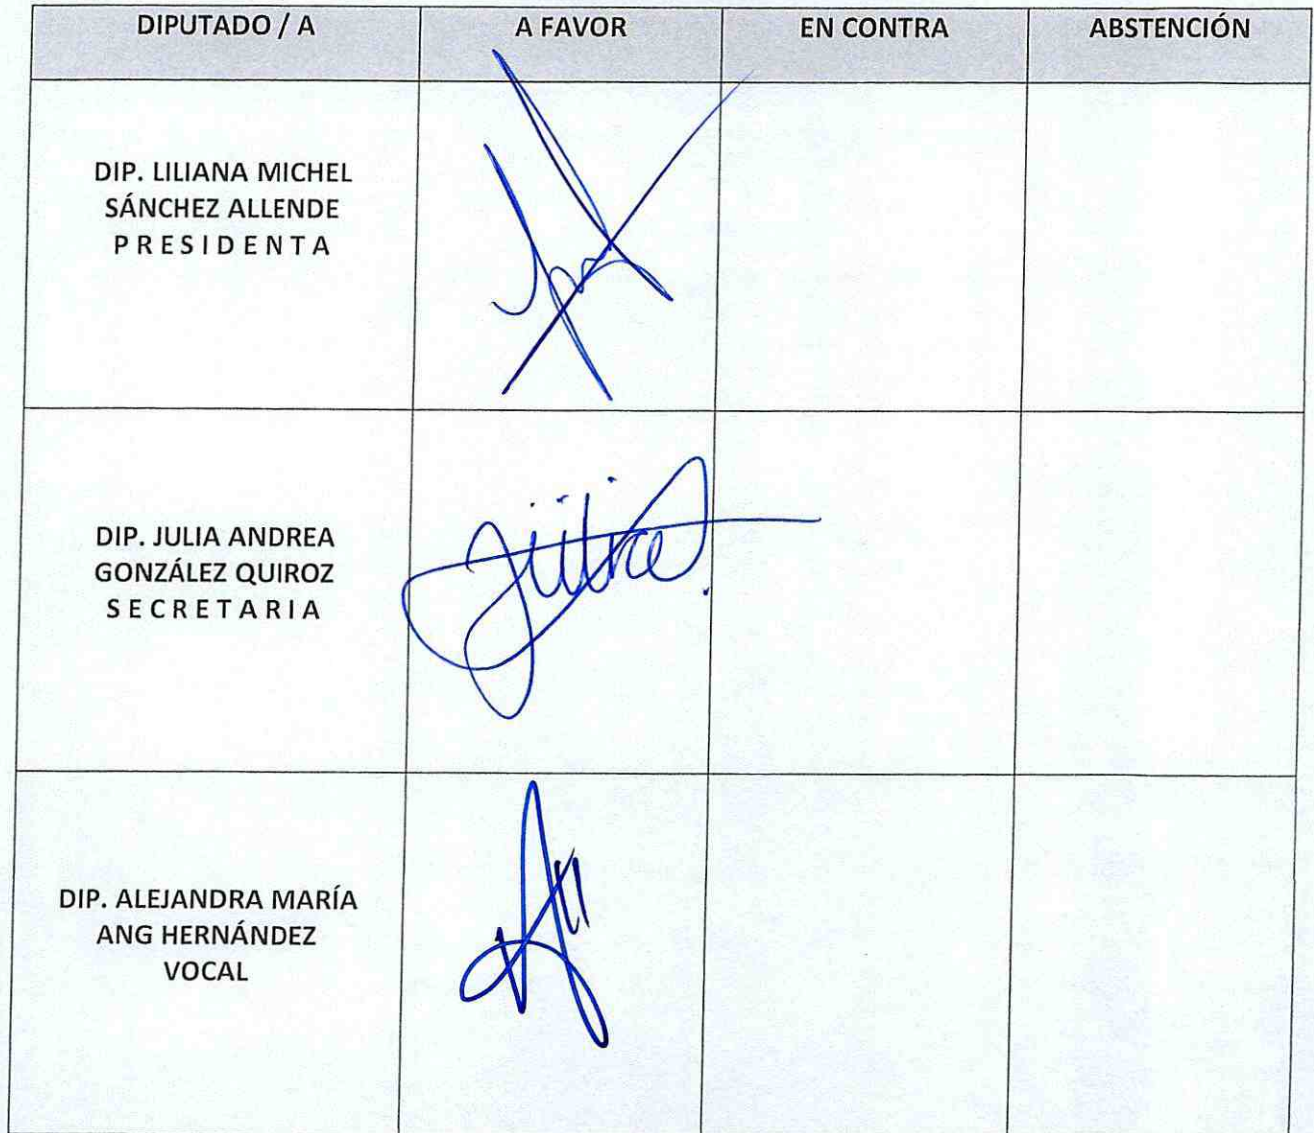 DIPUTADO / A A FAVOR EN CONTRA ABSTENCIÓN
DIP. LILIANA MICHEL
SÁNCHEZ ALLENDE
P R E S I D E N T A
DIP. JULIA ANDREA
GONZÁLEZ QUIROZ
S E C R E T A R I A
Julia
DIP. ALEJANDRA MARÍA
ANG HERNÁNDEZ
VOCAL